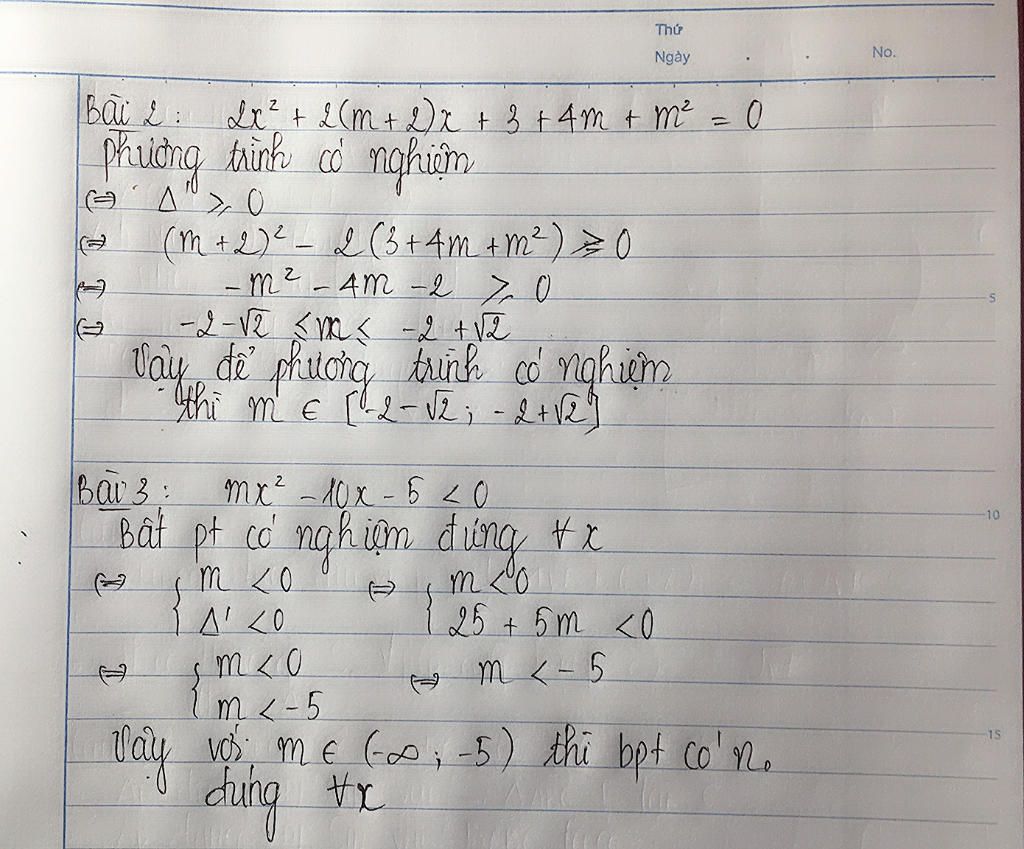 Thứ
Ngày . . No.
Bài 2: 2x² + 2(m+2)x + 3 + 4m + m² = 0
phương trình có nghiệm
⇔ Δ' ⩾ 0
⇔ (m+2)² - 2(3+4m+m²) ⩾ 0
⇔ -m² - 4m - 2 ⩾ 0
5
⇔ -2-√2 ⩽ m ⩽ -2+√2
Vậy để phương trình có nghiệm
thì m ∈ [-2-√2; -2+√2]
Bài 3: mx² - 10x - 5 < 0
10
Bất pt có nghiệm đúng ∀x
⇔ { m < 0 ⇔ { m < 0
Δ' < 0 25 + 5m < 0
⇔ { m < 0 ⇔ m < -5
m < -5
15
Vậy với m ∈ (-∞; -5) thì bpt có n.
đúng ∀x